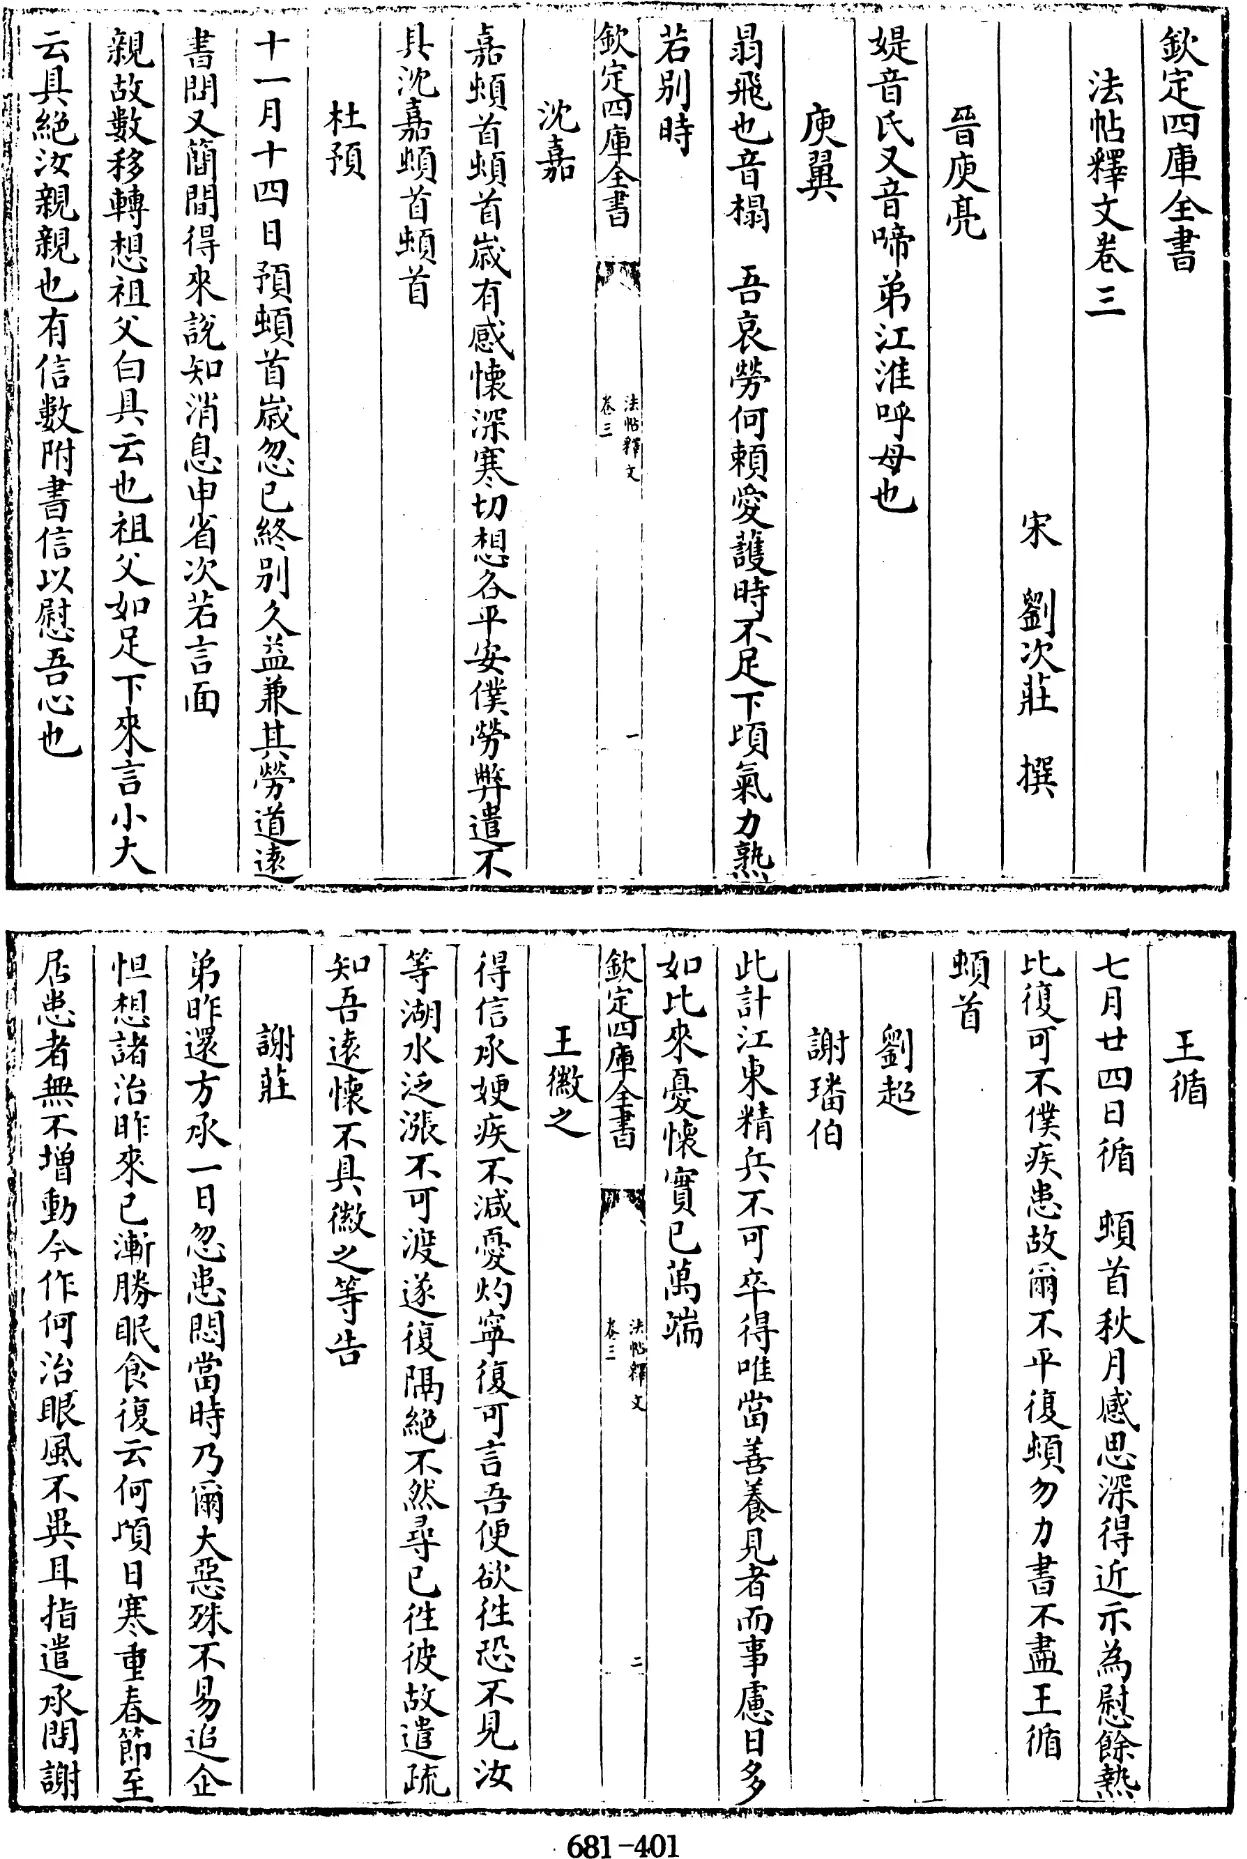 欽定四庫全書
法帖釋文卷三
宋　劉次莊　撰
晉庾亮
媞音氏又音啼弟江淮呼母也
庾翼
曷飛也音榻　吾哀勞何賴愛護時不足下頃氣力熟
若別時
欽定四庫全書
法帖釋文
卷三
一
沈嘉
嘉頓首頓首歲有感懷深寒切想各平安僕勞弊遣不
具沈嘉頓首頓首
杜預
十一月十四日預頓首歲忽已終別久益兼其勞道遠
書問又簡間得來說知消息申省次若言面
親故數移轉想祖父白具云也祖父如足下來言小大
云具絕汝親親也有信數附書信以慰吾心也
王循
七月廿四日循　頓首秋月感思深得近示為慰餘熱
比復可不僕疾患故爾不平復頓勿力書不盡王循
頓首
劉超
謝璠伯
此計江東精兵不可卒得唯當善養見者而事慮日多
如比來憂懷實已萬端
欽定四庫全書
法帖釋文
卷三
二
王徽之
得信承嫂疾不減憂灼寧復可言吾便欲往恐不見汝
等湖水泛漲不可渡遂復隔絕不然尋已往彼故遣疏
知吾遠懷不具徽之等告
謝莊
弟昨還方承一日忽患悶當時乃爾大惡殊不易追企
怛想諸治昨來已漸勝眠食復云何頃日寒重春節至
居患者無不增動今作何治眼風不異耳指遣承問謝
681-401